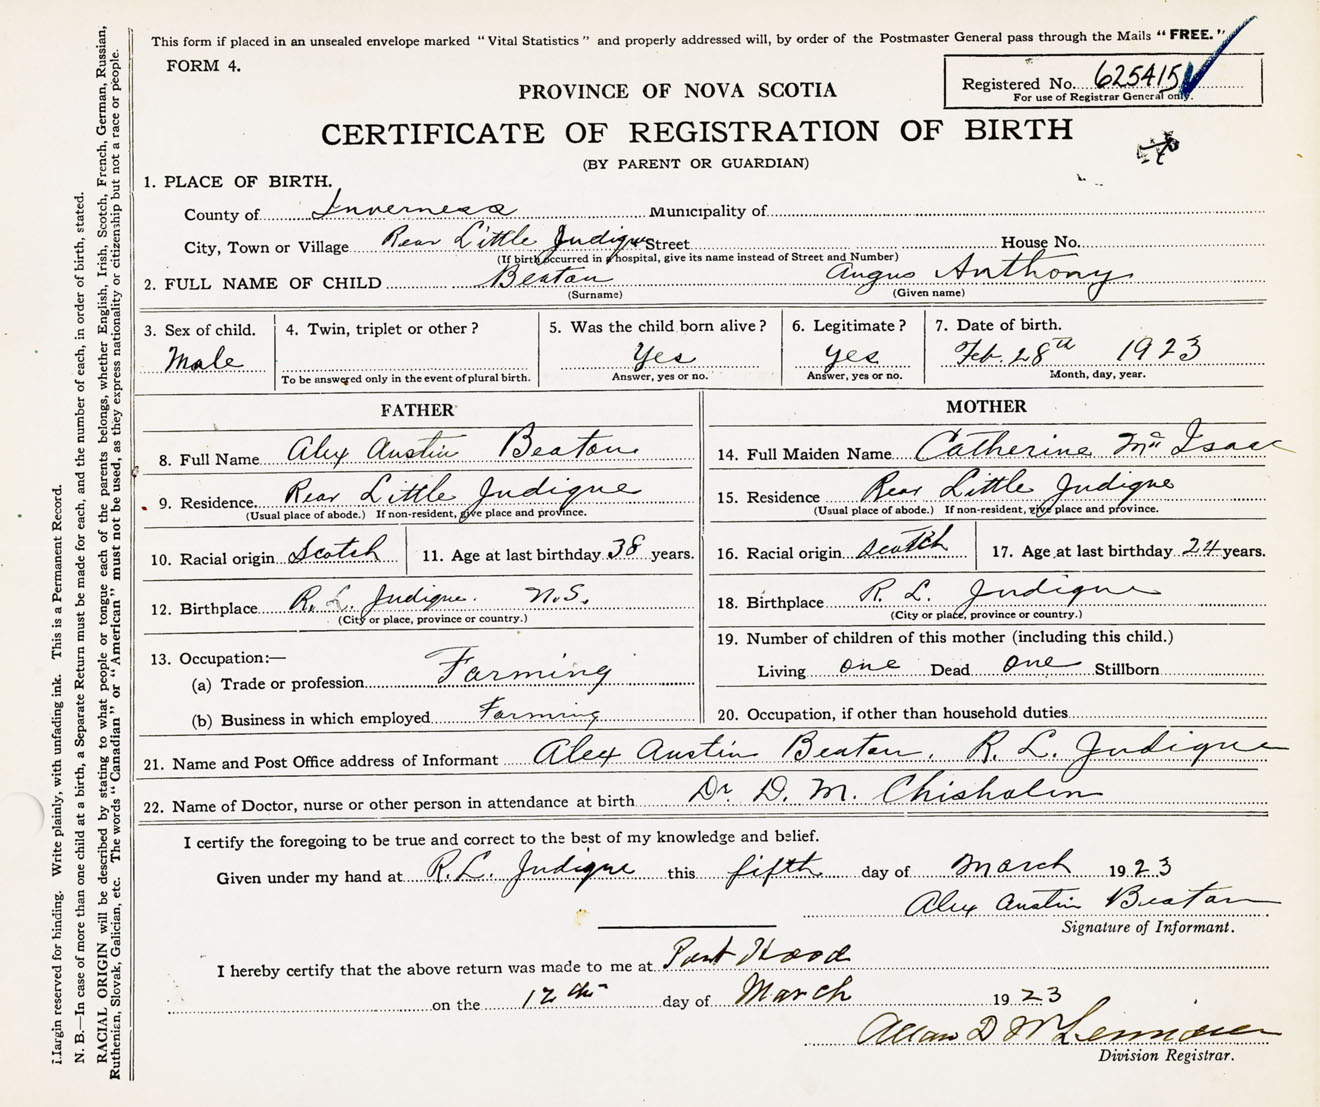 This form if placed in an unsealed envelope marked "Vital Statistics" and properly addressed will, by order of the Postmaster General pass through the Mails "FREE."
FORM 4.
Registered No. 625415
For use of Registrar General only.
PROVINCE OF NOVA SCOTIA
CERTIFICATE OF REGISTRATION OF BIRTH
(BY PARENT OR GUARDIAN)
1. PLACE OF BIRTH.
County of Inverness Municipality of
City, Town or Village Rear Little Judique Street House No.
(If birth occurred in a hospital, give its name instead of Street and Number)
2. FULL NAME OF CHILD Beaton Angus Anthony
(Surname) (Given name)
3. Sex of child. 4. Twin, triplet or other? 5. Was the child born alive? 6. Legitimate? 7. Date of birth.
Male Yes Yes Feb. 28th 1923
To be answered only in the event of plural birth. Answer, yes or no. Answer, yes or no. Month, day, year.
FATHER
8. Full Name Alex Austin Beaton
9. Residence. Rear Little Judique
(Usual place of abode.) If non-resident, give place and province.
10. Racial origin Scotch 11. Age at last birthday 38 years.
12. Birthplace R. L. Judique. N.S.
(City or place, province or country.)
13. Occupation:—
(a) Trade or profession Farming
(b) Business in which employed Farming
MOTHER
14. Full Maiden Name Catherine Mac Isaac
15. Residence Rear Little Judique
(Usual place of abode.) If non-resident, give place and province.
16. Racial origin Scotch 17. Age at last birthday 24 years.
18. Birthplace R. L. Judique
(City or place, province or country.)
19. Number of children of this mother (including this child.)
Living one Dead one Stillborn
20. Occupation, if other than household duties
21. Name and Post Office address of Informant Alex Austin Beaton, R. L. Judique
22. Name of Doctor, nurse or other person in attendance at birth Dr. D. M. Chisholm
I certify the foregoing to be true and correct to the best of my knowledge and belief.
Given under my hand at R.L. Judique this fifth day of March 1923
Alex Austin Beaton
Signature of Informant.
I hereby certify that the above return was made to me at Port Hood
on the 12th day of March 1923
Allan D
Division Registrar.
Margin reserved for binding. Write plainly, with unfading ink. This is a Permanent Record.
N. B.—In case of more than one child at a birth, a Separate Return must be made for each, and the number of each, in order of birth, stated.
RACIAL ORIGIN will be described by stating to what people or tongue each of the parents belongs, whether English, Irish, Scotch, French, German, Russian,
Ruthenian, Slovak, Galician, etc. The words "Canadian" or "American" must not be used, as they express nationality or citizenship but not a race or people.